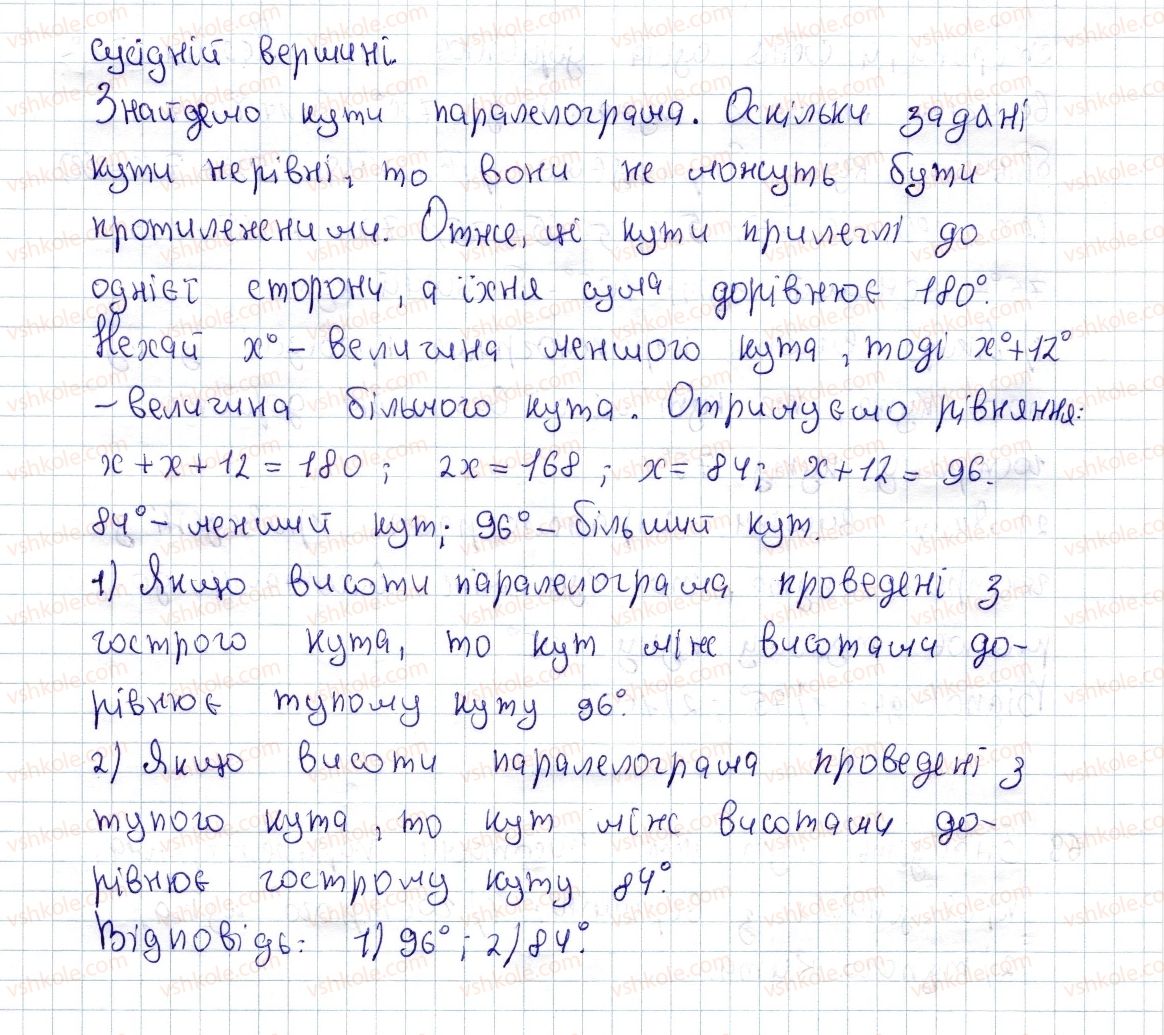 сусідній вершині.
Знайдемо кути паралелограма. Оскільки задані
кути нерівні, то вони не можуть бути
протилеженими. Отже, ці кути прилеглі до
однієї сторони, а їхня сума дорівнює 180°.
Нехай x° – величина меншого кута, тоді x°+12°
– величина більшого кута. Отримуємо рівняння:
x + x + 12 = 180 ; 2x = 168 ; x = 84; x + 12 = 96.
84° – менший кут; 96° – більший кут.
1) Якщо висоти паралелограма проведені з
гострого кута, то кут між висотами до-
рівнює тупому куту 96°.
2) Якщо висоти паралелограма проведені з
тупого кута, то кут між висотами до-
рівнює гострому куту 84°.
Відповідь: 1) 96° ; 2) 84°.
vshkole.com